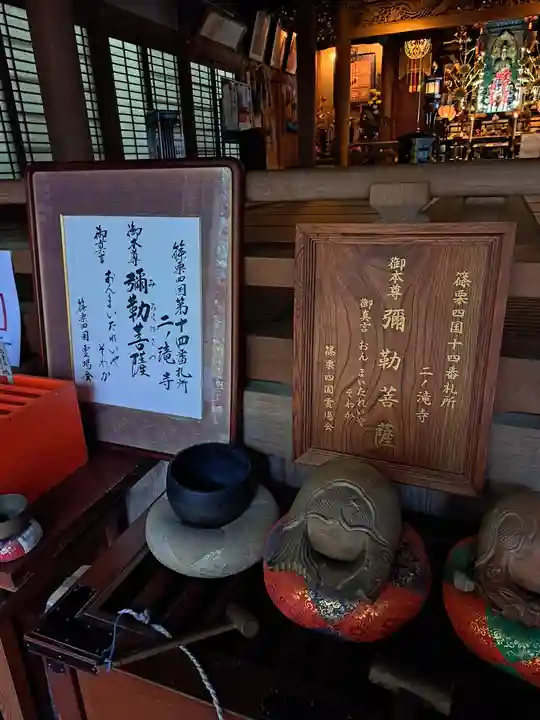 篠栗四国第十四番札所
二滝寺
御本尊 彌勒菩薩
みろくぼさつ
御真言 おん まいたれいや そわか
篠栗四国霊場会
篠栗四国十四番札所
二ノ滝寺
御本尊 彌勒菩薩
御真言 おん まいたれいや そわか
篠栗四国霊場会